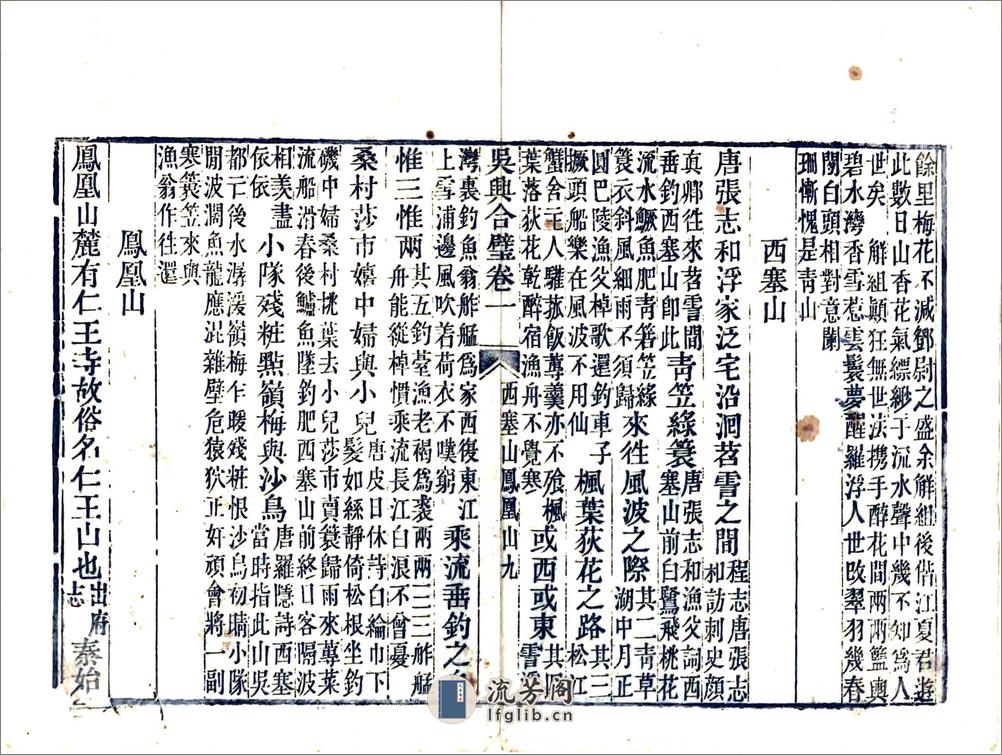 餘里梅花不減鄧尉之盛余解組後偕江夏君遊
此數日山香花氣縹緲于流水聲中幾不知爲人
世矣 解組顛狂無世法携手醉花間兩兩籃輿
碧水灣香雪惹雲鬟夢醒羅浮人世改翠羽幾春
閒白頭相對意闌
珊慚愧是靑山
西塞山
唐張志和浮家泛宅沿洄苕霅之間
程志唐張志
和訪刺史顏
真卿徃來苕霅間
垂釣西塞山卽此
靑笠綠蓑
唐張志和漁父詞西
塞山前白鷺飛桃花
流水鱖魚肥靑箬笠綠
蓑衣斜風細雨不須歸
來徃風波之際
其二靑草
湖中月正
圓巴陵漁父棹歌還釣車子
橛頭船樂在風波不用仙
楓葉荻花之路
其三
松江
蟹舍主人驩菰飯蓴羹亦不飱楓
葉落荻花乾醉宿漁舟不覺寒
或西或東
其四
霅
吳興合璧卷一
西塞山鳳凰山 九
灣裏釣魚翁舴艋爲家西復東江
上雪浦邊風吹着荷衣不嘆窮
乘流垂釣之
惟三惟兩
其五釣臺漁老褐爲裘兩兩三三舴艋
舟能縱棹慣乘流長江白浪不曾憂
桑村莎市嬉中婦與小兒
唐皮日休詩白綸巾下
髮如絲靜倚松根坐釣
磯中婦桑村挑葉去小兒莎市賣蓑歸雨來蓴菜
流船滑春後鱸魚墜釣肥西塞山前終口客隔波
相羡盡
依依
小隊殘粧點嶺梅與沙鳥
唐羅隱詩西塞
當時指此山吳
都亡後水潺湲嶺梅乍暖殘粧恨沙鳥初晴小隊
閒波濶魚龍應混雜壁危猿狖正奸頑會將一副
寒蓑笠來與
漁翁作往還
鳳凰山
鳳凰山麓有仁王寺故俗名仁王山也
出府
志
秦始
流芳閣
lfglib.cn